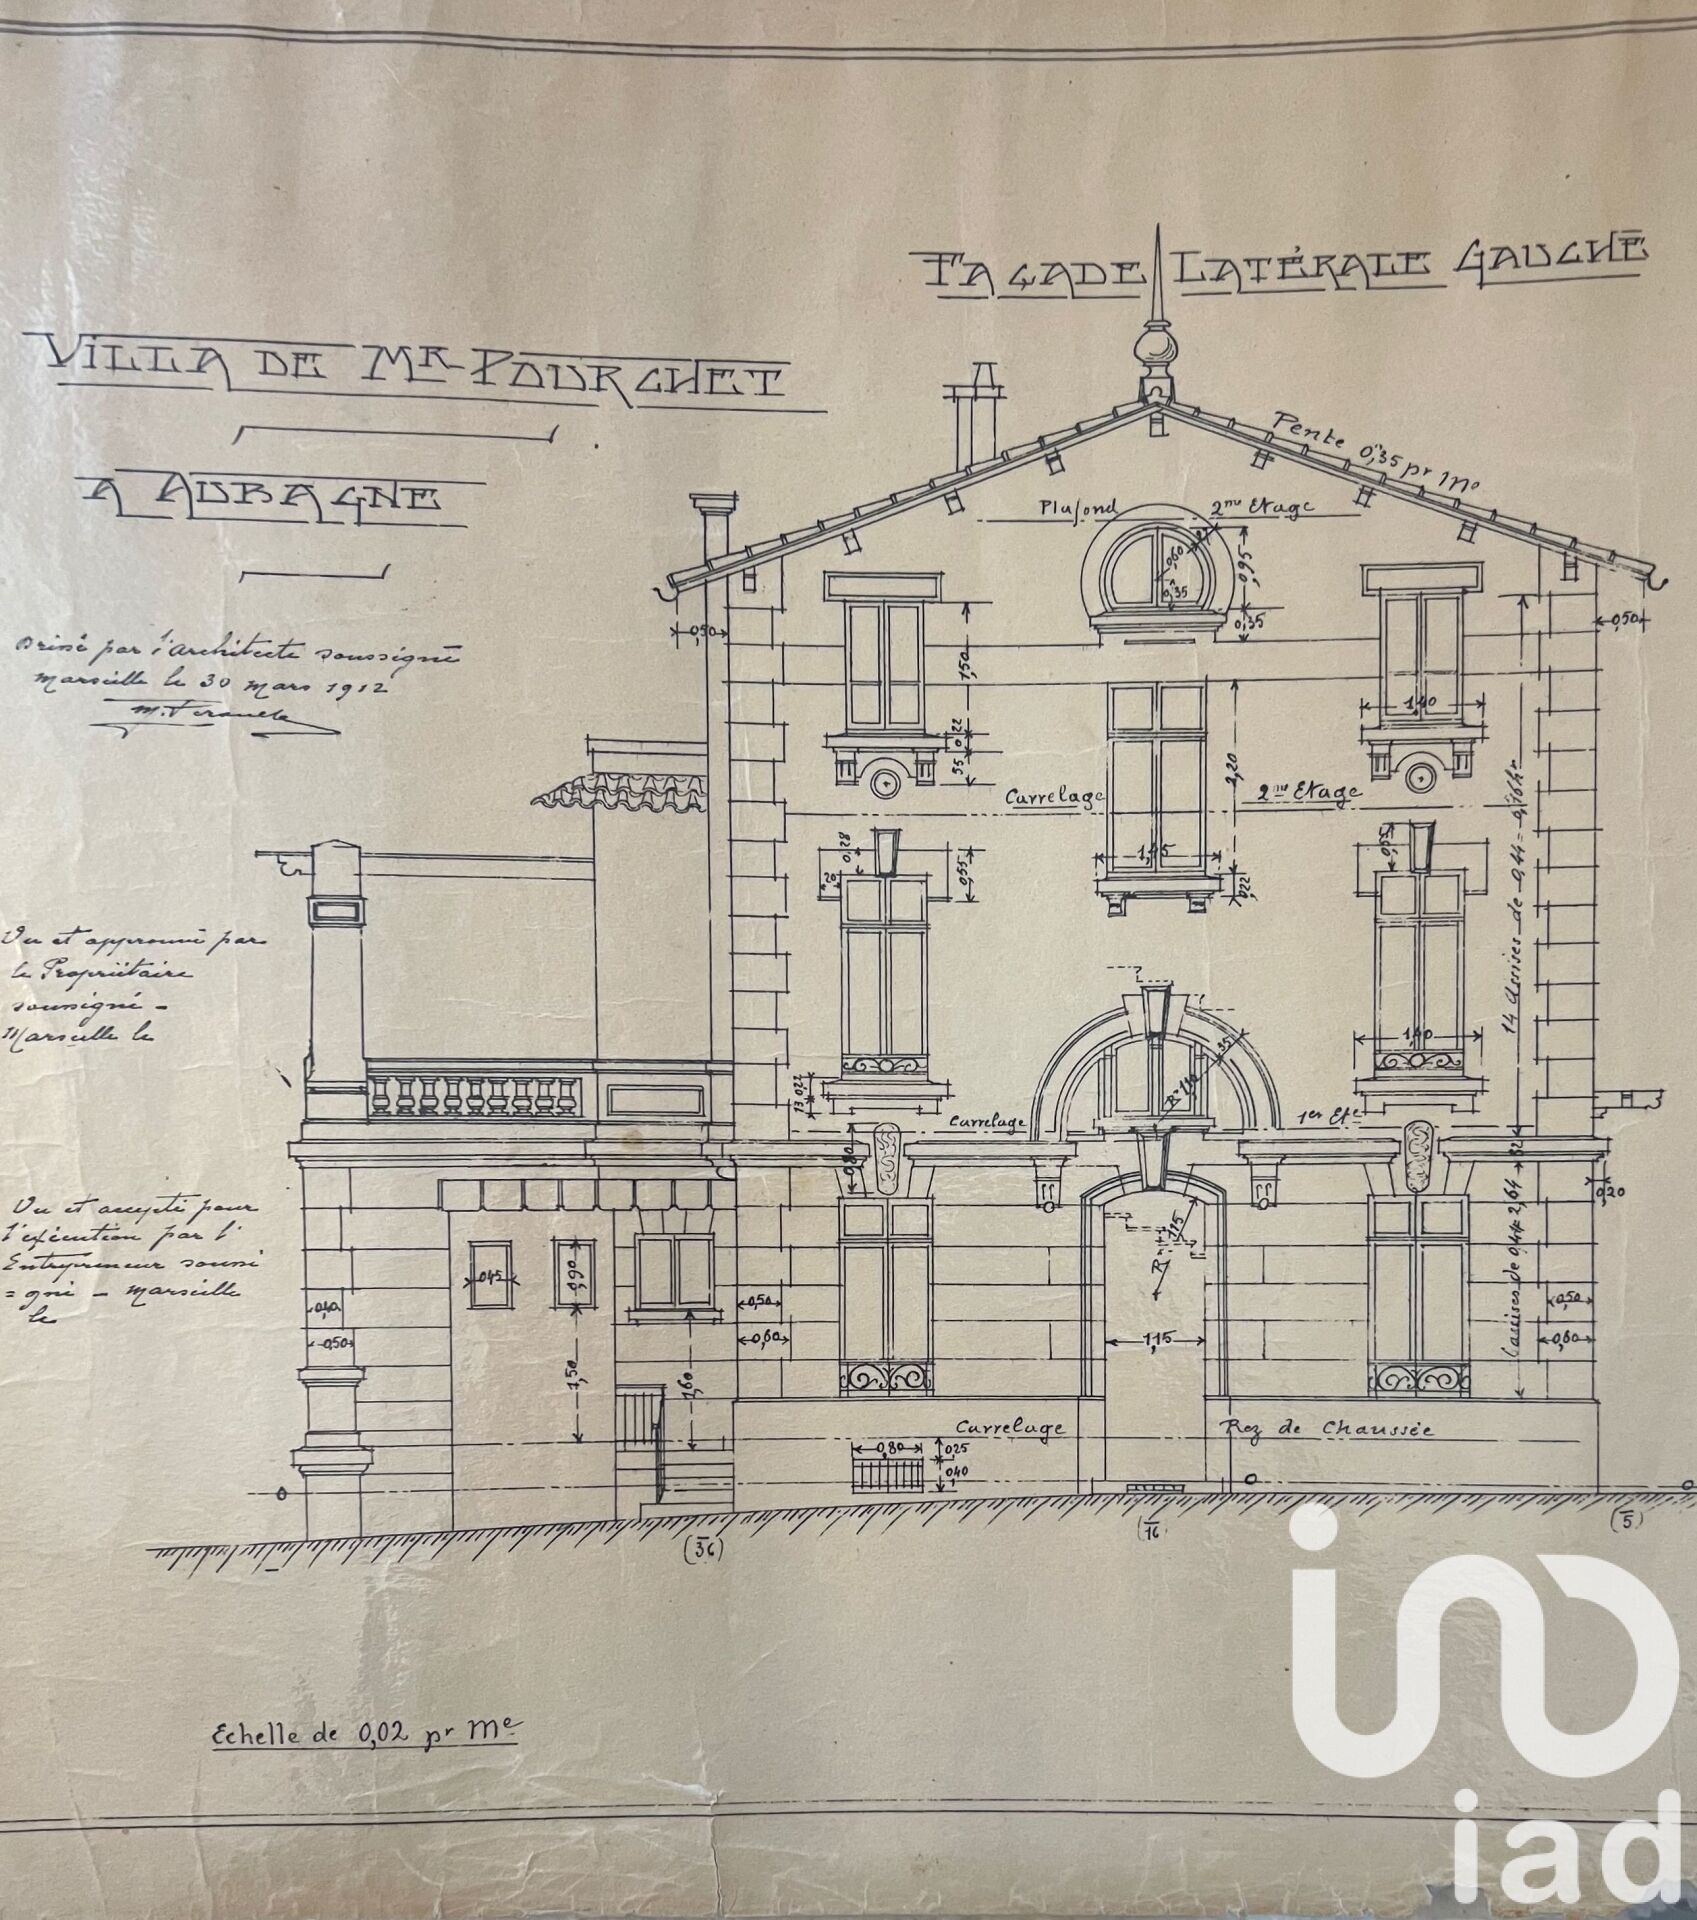 FAÇADE LATÉRALE GAUCHE
VILLA DE MR POURCHET
A AUBAGNE
Pente 0m,35 pr Me
Plafond 2me Etage
0,60
0,35
0,95
0,35
0,50
0,50
1,50
0,22
55
1,40
par l'architecte soussigné
Marseille le 30 mars 1912
2,20
Carrelage 2me Etage
0,28
0,20
0,55
1,15
0,22
0,55
14 assises de 0,44 =
Vu et approuvé par
le Propriétaire
soussigné -
Marseille le
1,40
35
R=1,10
0,22
13
Carrelage 1er Ete
0,80
0,20
Vu et accepté pour
l'exécution par l'
Entrepreneur soussi
= gné - Marseille
le
0,45
0,90
0,40
0,50
1,50
1,60
0,50
0,60
1,15
1,15
0,50
0,60
6 assises de 0,44 = 2,64
Carrelage Rez de Chaussée
0,80
0,25
0,40
(36)
(16)
(5)
Echelle de 0,02 pr Me
iad